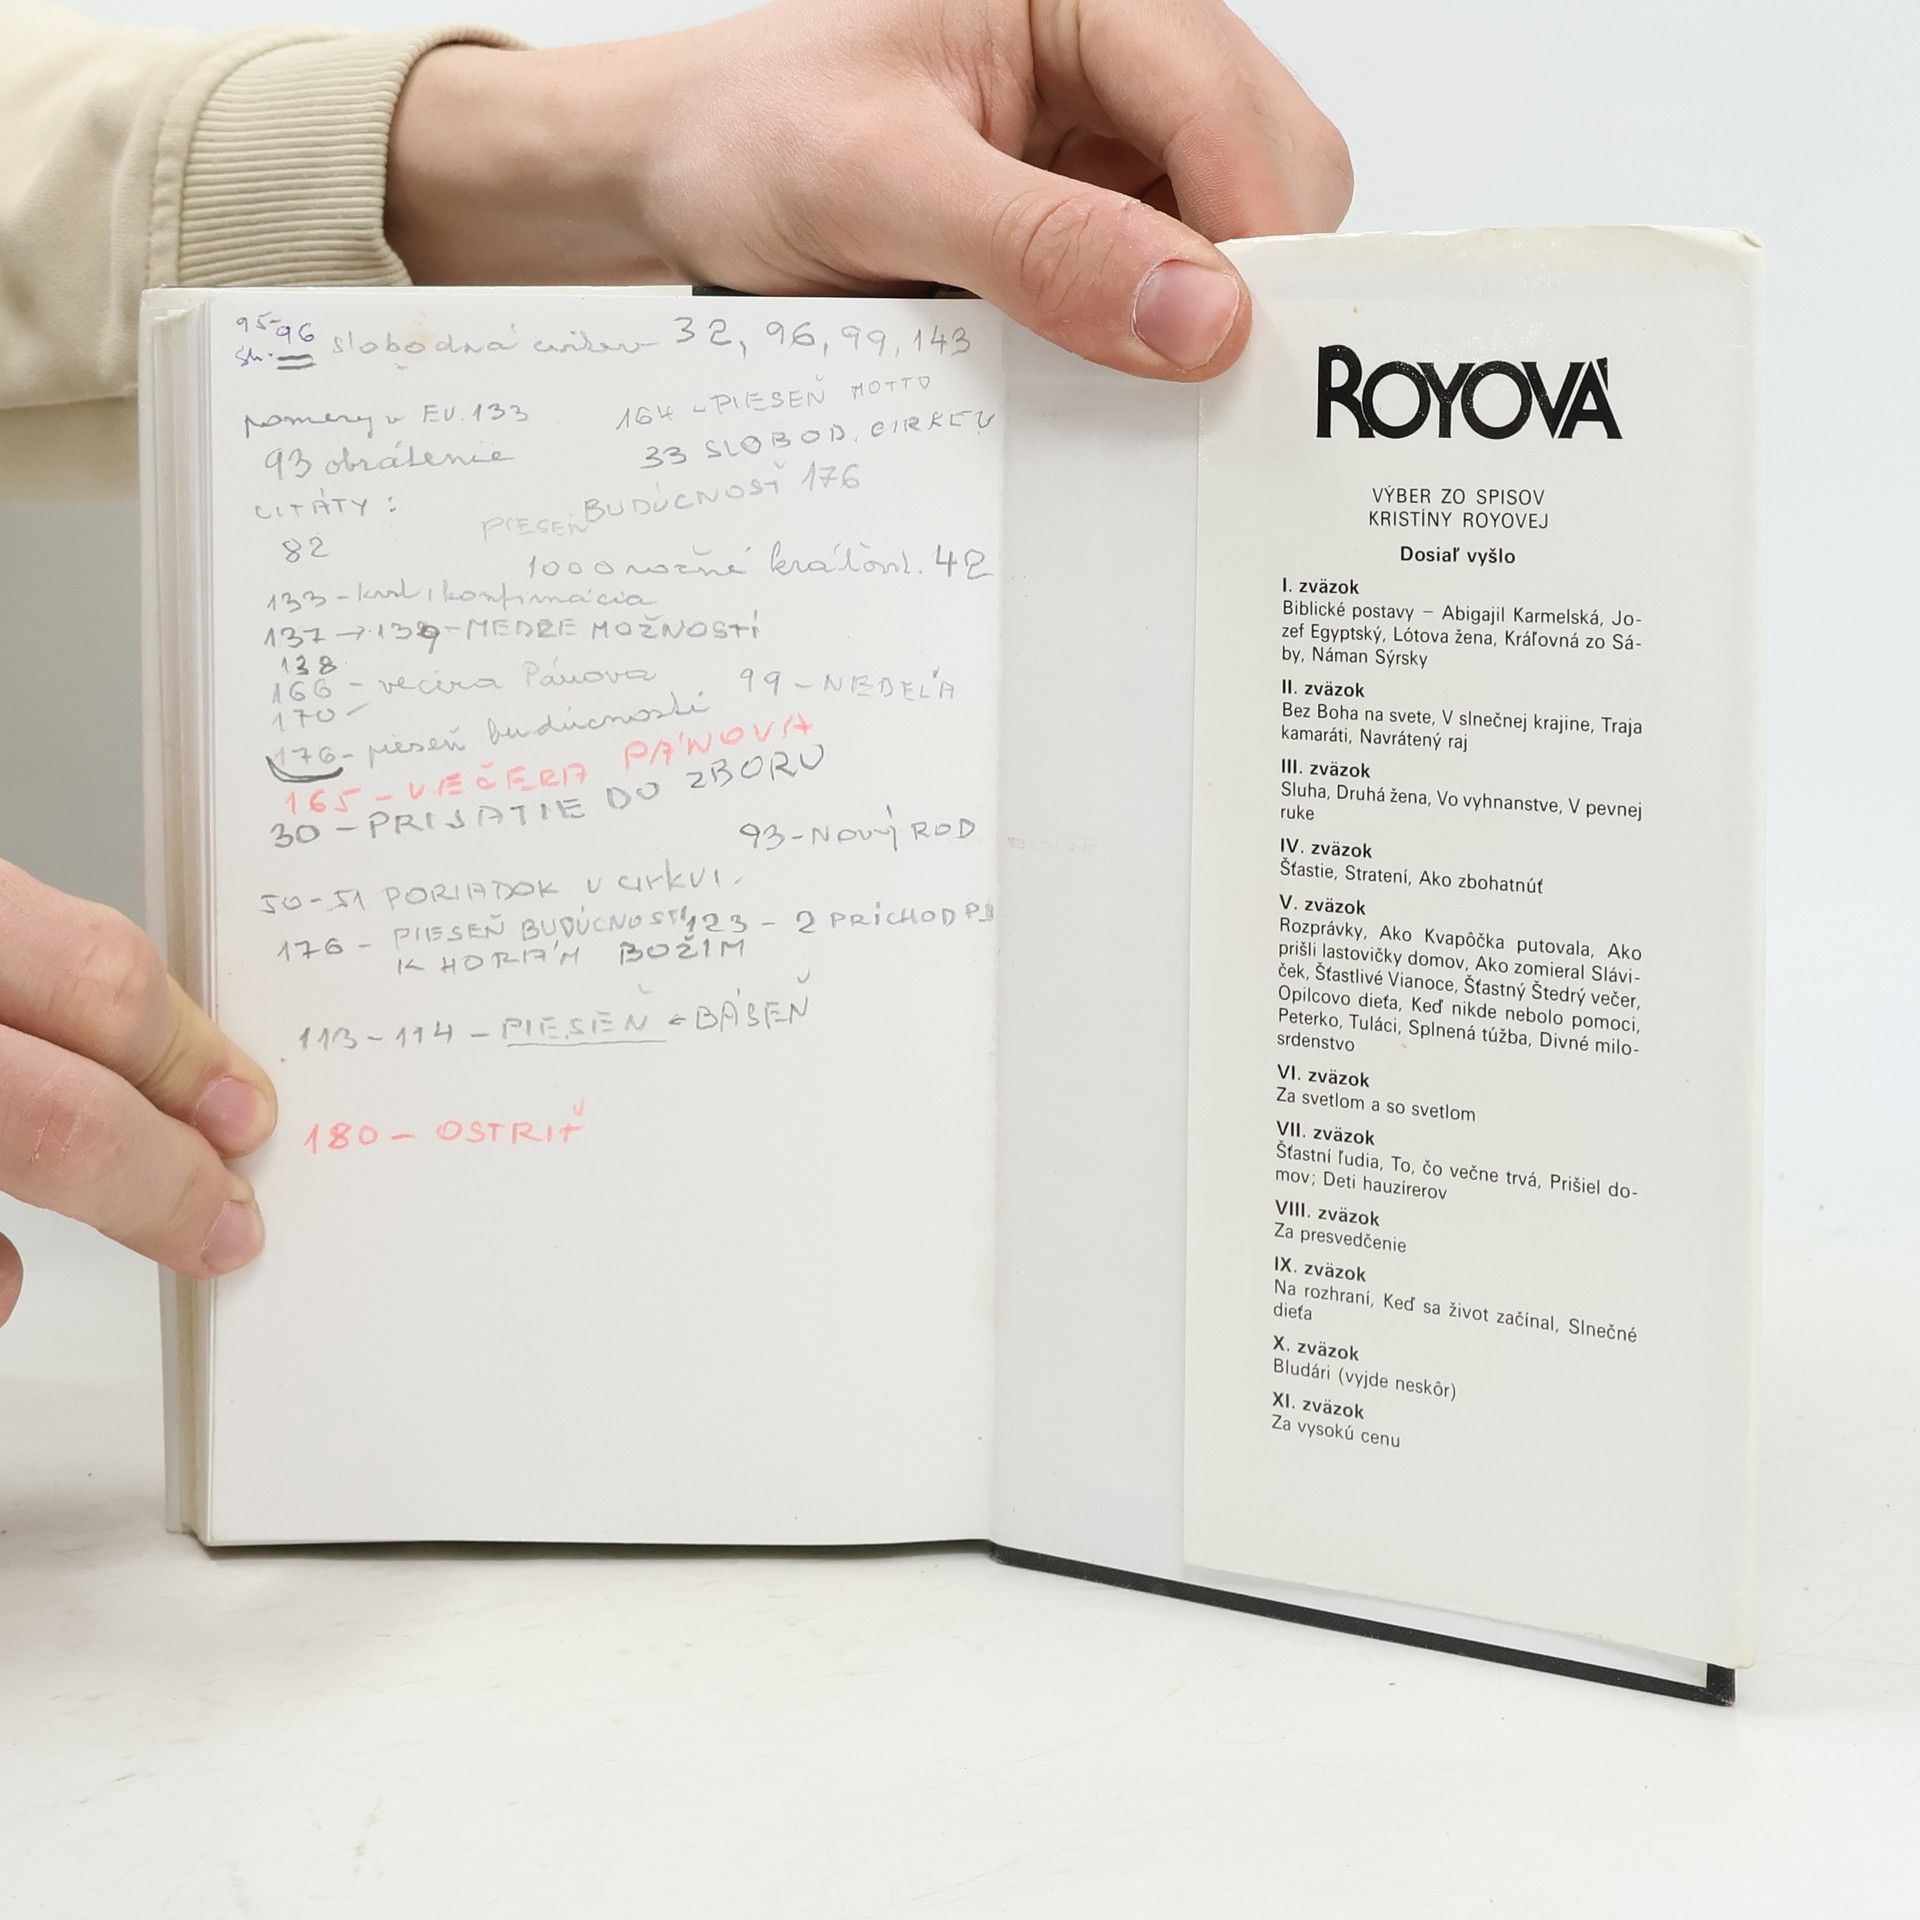 95-96
str. slobodná cirkev 32, 96, 99, 143
pomery v EV. 133
164 - PIESEŇ MOTTO
93 obrátenie
33 SLOBOD. CIRKEV
CITÁTY:
BUDÚCNOSŤ 176
PIESEŇ
82
1000 ročné kráľovs. 42
133 - krst i konfirmácia
137 → 139 - MEDZE MOŽNOSTÍ
138
166 - večera Pánova
99 - NEDEĽA
170 -
176 - pieseň budúcnosti
165 - VEČERA PÁNOVA
30 - PRIJATIE DO ZBORU
93 - NOVÝ ROD
50-51 PORIADOK V CIRKVI
176 - PIESEŇ BUDÚCNOSTI
123 - 2 PRÍCHOD
K HORÁM BOŽÍM
113-114 - PIESEŇ - BÁSEŇ
180 - OSTRIŤ
ROYOVÁ
VÝBER ZO SPISOV
KRISTÍNY ROYOVEJ
Dosiaľ vyšlo
I. zväzok
Biblické postavy – Abigajil Karmelská, Jo-
zef Egyptský, Lótova žena, Kráľovná zo Sá-
by, Náman Sýrsky
II. zväzok
Bez Boha na svete, V slnečnej krajine, Traja
kamaráti, Navrátený raj
III. zväzok
Sluha, Druhá žena, Vo vyhnanstve, V pevnej
ruke
IV. zväzok
Šťastie, Stratení, Ako zbohatnúť
V. zväzok
Rozprávky, Ako Kvapôčka putovala, Ako
prišli lastovičky domov, Ako zomieral Slávi-
ček, Šťastlivé Vianoce, Šťastný Štedrý večer,
Opilcovo dieťa, Keď nikde nebolo pomoci,
Peterko, Tuláci, Splnená túžba, Divné milo-
srdenstvo
VI. zväzok
Za svetlom a so svetlom
VII. zväzok
Šťastní ľudia, To, čo večne trvá, Prišiel do-
mov; Deti hauzírerov
VIII. zväzok
Za presvedčenie
IX. zväzok
Na rozhraní, Keď sa život začínal, Slnečné
dieťa
X. zväzok
Bludári (vyjde neskôr)
XI. zväzok
Za vysokú cenu